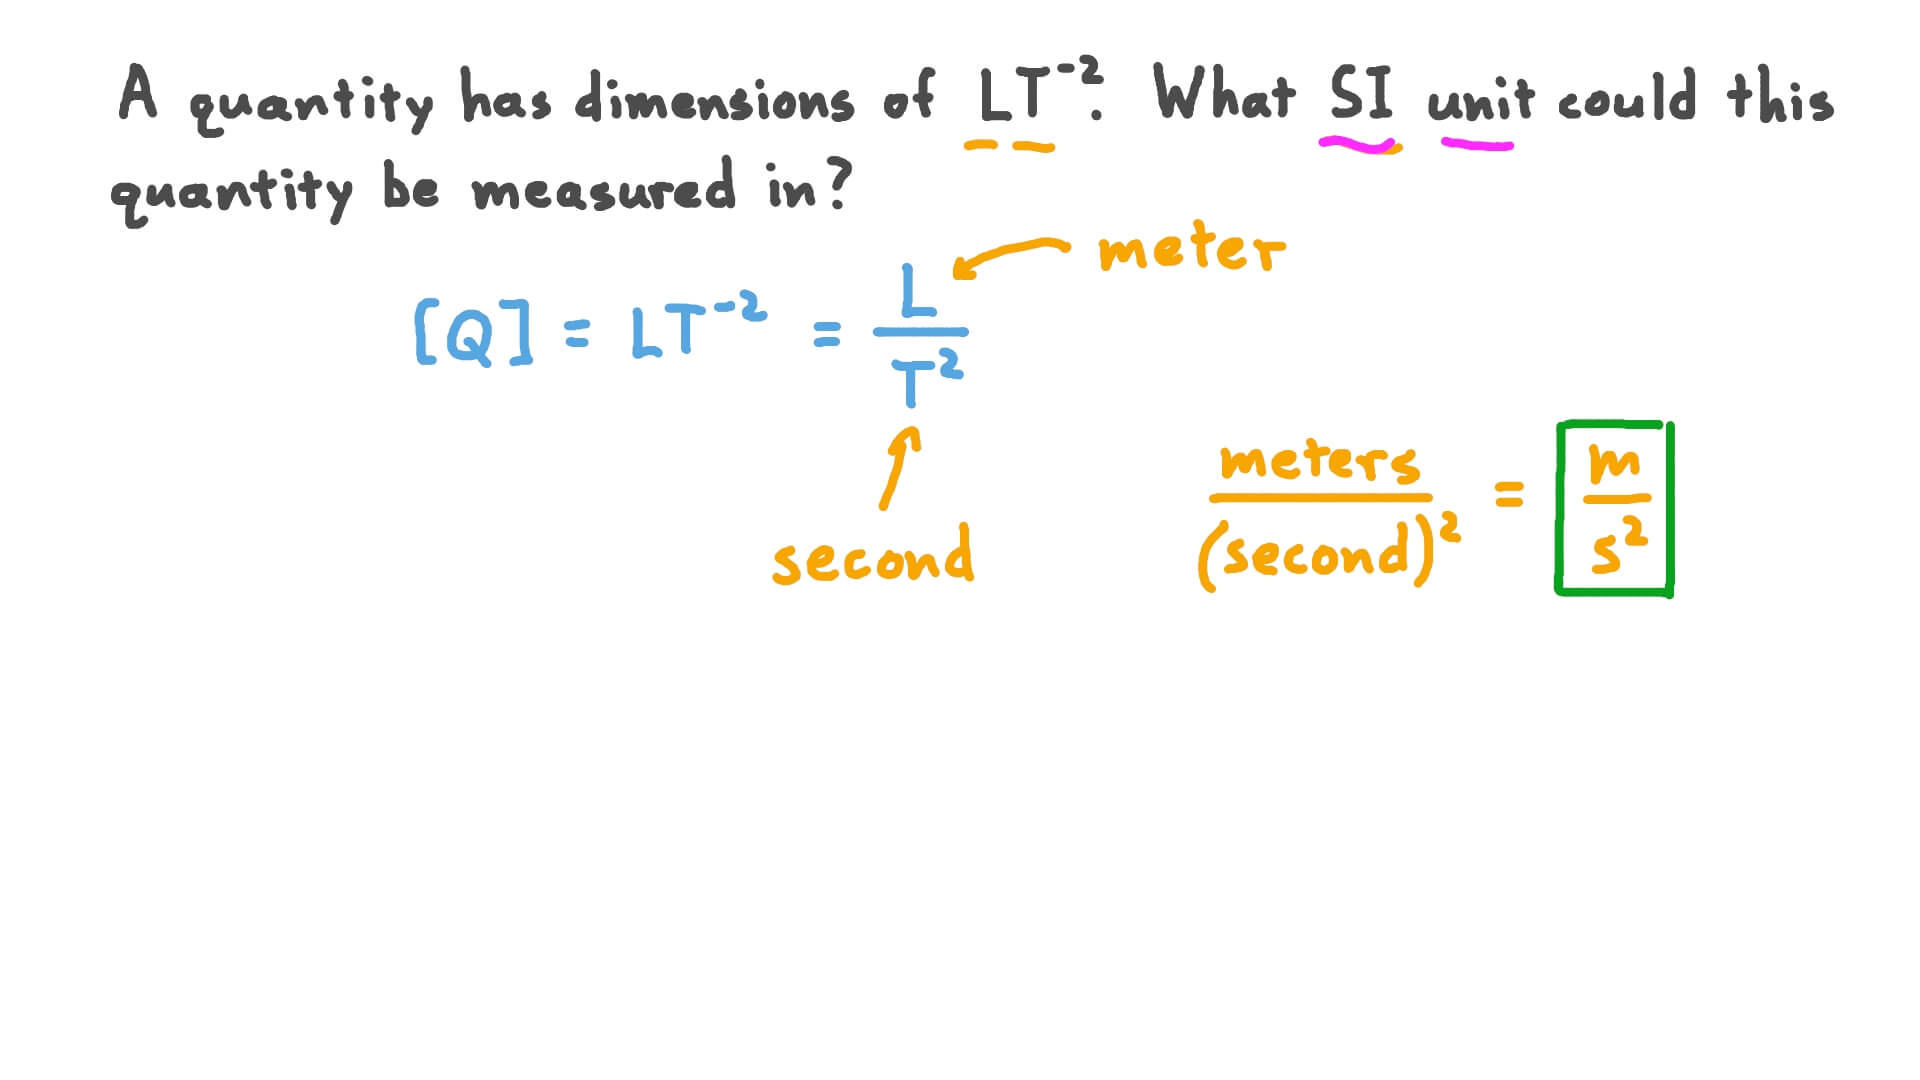 A quantity has dimensions of LT⁻². What SI unit could this
quantity be measured in?
meter
[Q] = LT⁻² = L/T²
second
meters/(second)² = m/s²